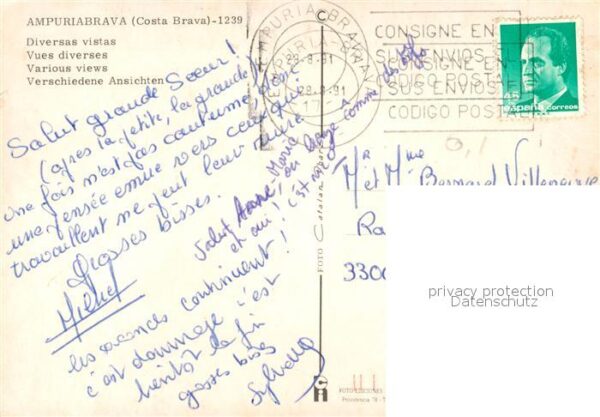 AMPURIABRAVA (Costa Brava)-1239
Diversas vistas
Vues diverses
Various views
Verschiedene Ansichten
AMPURIABRAVA
28-8-91
CONSIGNE EN
SUS ENVIOS EL
CODIGO POSTAL
45
España correos
Salut grande Soeur!
(après la petite, la grande!)
Une fois n'est pas coutume,
une pensée émue vers ceux qui
travaillent ne peut leur nuire
Grosses bisses.
Michel
Salut Anne Marie
et oui!
comme
les vacances continuent!
c'est dommage c'est
bientôt la fin
grosses bises
Sylvette
Mr et Mme Bernard Villeneuve
3300
privacy protection
Datenschutz
FOTO